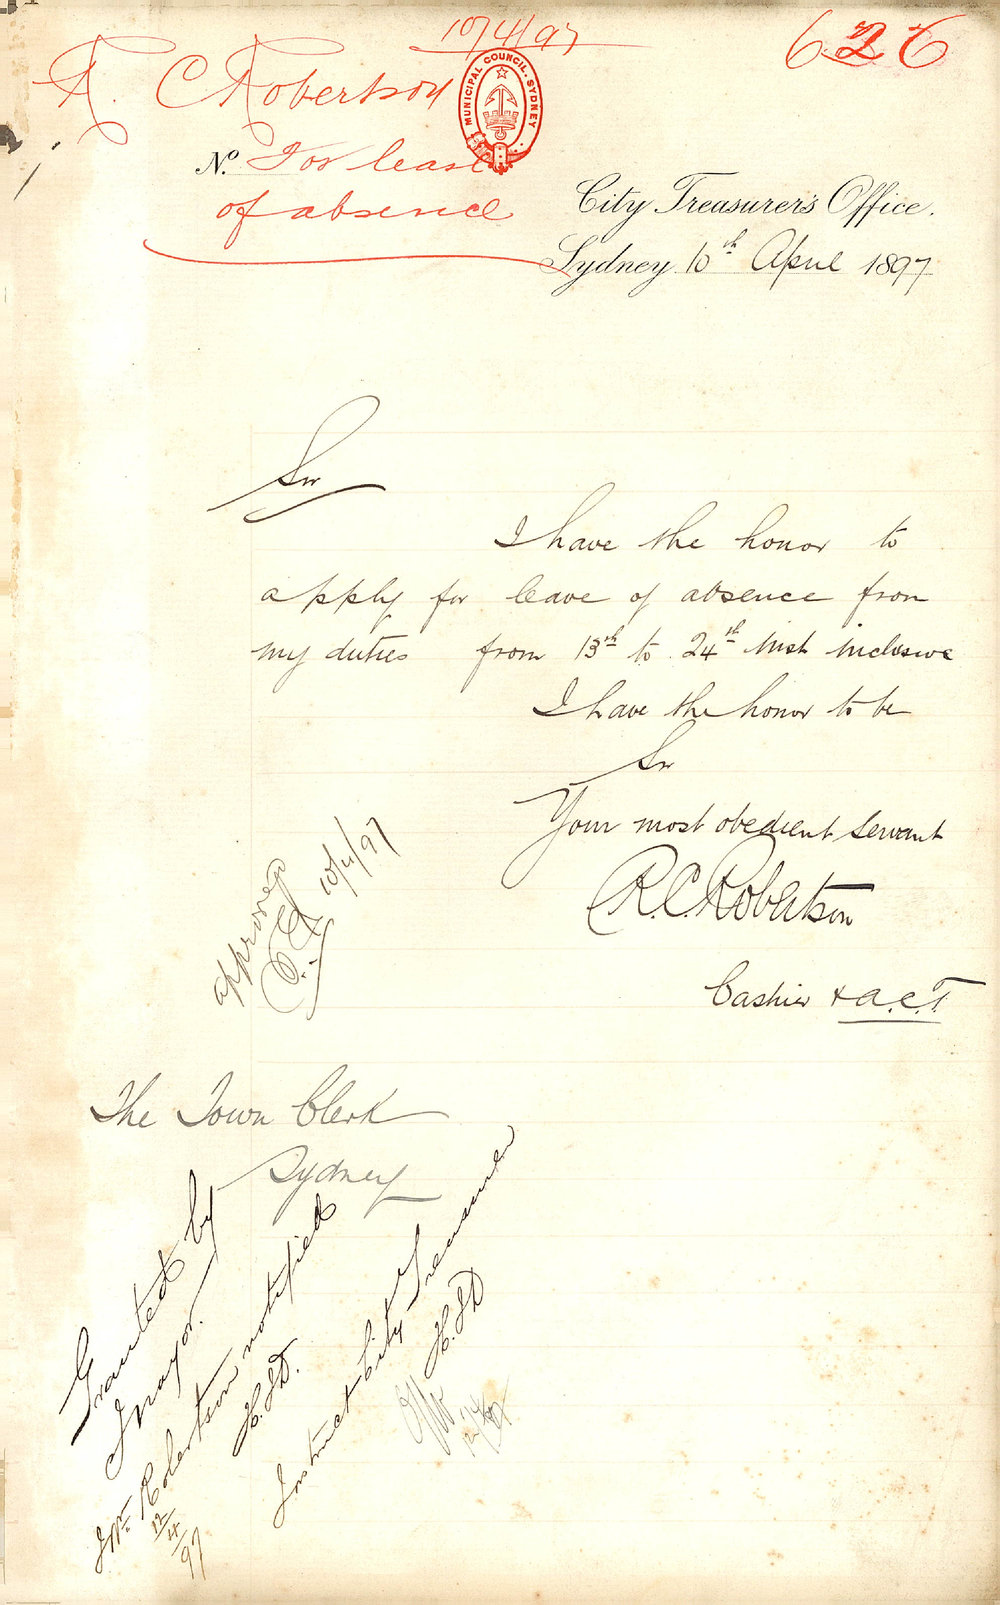 10/4/97
626
R. C Robertson
MUNICIPAL COUNCIL. SYDNEY
No. For leave
of absence
City Treasurer's Office.
Sydney 10th April 1897
Sir
I have the honor to
apply for leave of absence from
my duties from 13th to 24th inst inclusive
I have the honor to be
Sir
Your most obedient servant
R. C. Robertson
Cashier & A.C.T.
approved
10/4/97
The Town Clerk
Sydney
Granted by
Mayor.
Mr Robertson notified
H.J.D.
12/4/97
Instruct City Treasurer
H.J.D
12/4/97